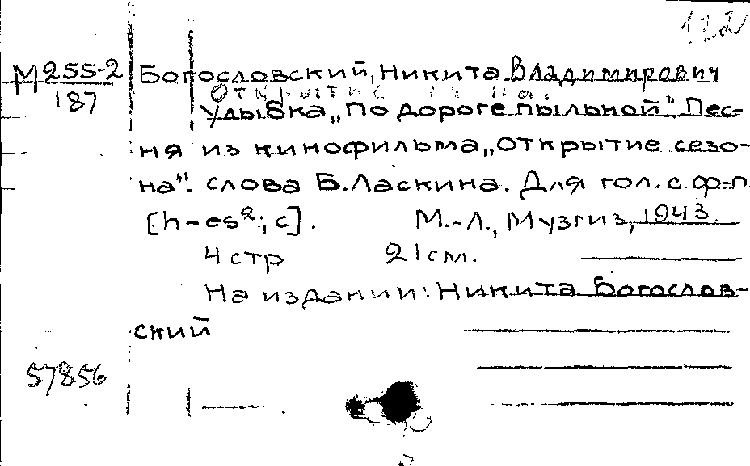 М 255-2
187
Богословский, Никита Владимирович
Открытие
Улыбка „По дороге пыльной". Пес-
ня из кинофильма „Открытие сезо-
на". слова Б. Ласкина. Для гол. с ф-п
[h-es²; c]. М.-Л., Музгиз, 1943.
4 стр 21 см.
На издании: Никита Богослов-
ский
57856